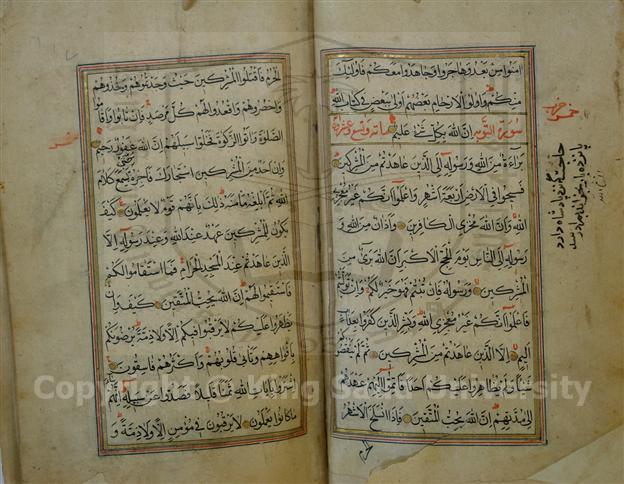 امنوا من بعد وهاجروا وجاهدوا معكم فاولئك
منكم واولوا الارحام بعضهم اولى ببعض في كتاب الله
سورة التوبة ان الله بكل شئ عليم مائة وتسع وعشرون
براءة من الله ورسوله الى الذين عاهدتم من المشركين
فسيحوا في الارض اربعة اشهر واعلموا انكم غير معجزي
الله وان الله مخزي الكافرين واذان من الله و
رسوله الى الناس يوم الحج الاكبر ان الله برئ من
المشركين ورسوله فان تبتم فهو خير لكم وان توليتم
فاعلموا انكم غير معجزي الله وبشر الذين كفروا بعذاب
اليم الا الذين عاهدتم من المشركين ثم لم ينقصوكم
شيئا ولم يظاهروا عليكم احدا فاتموا اليهم عهدهم
الى مدتهم ان الله يحب المتقين فاذا انسلخ الاشهر
الحرم
الحرم فاقتلوا المشركين حيث وجدتموهم وخذوهم
واحصروهم واقعدوا لهم كل مرصد فان تابوا واقاموا
الصلوة واتوا الزكوة فخلوا سبيلهم ان الله غفور رحيم
وان احد من المشركين استجارك فاجره حتى يسمع كلام
الله ثم ابلغه مامنه ذلك بانهم قوم لا يعلمون كيف
يكون للمشركين عهد عند الله وعند رسوله الا
الذين عاهدتم عند المسجد الحرام فما استقاموا لكم
فاستقيموا لهم ان الله يحب المتقين كيف وان
يظهروا عليكم لا يرقبوا فيكم الا ولا ذمة يرضونكم
بافواههم وتابى قلوبهم واكثرهم فاسقون
اشتروا بايات الله ثمنا قليلا فصدوا عن سبيله انهم ساء
ما كانوا يعملون لا يرقبون في مؤمن الا ولا ذمة و
Copyright © King Saud University